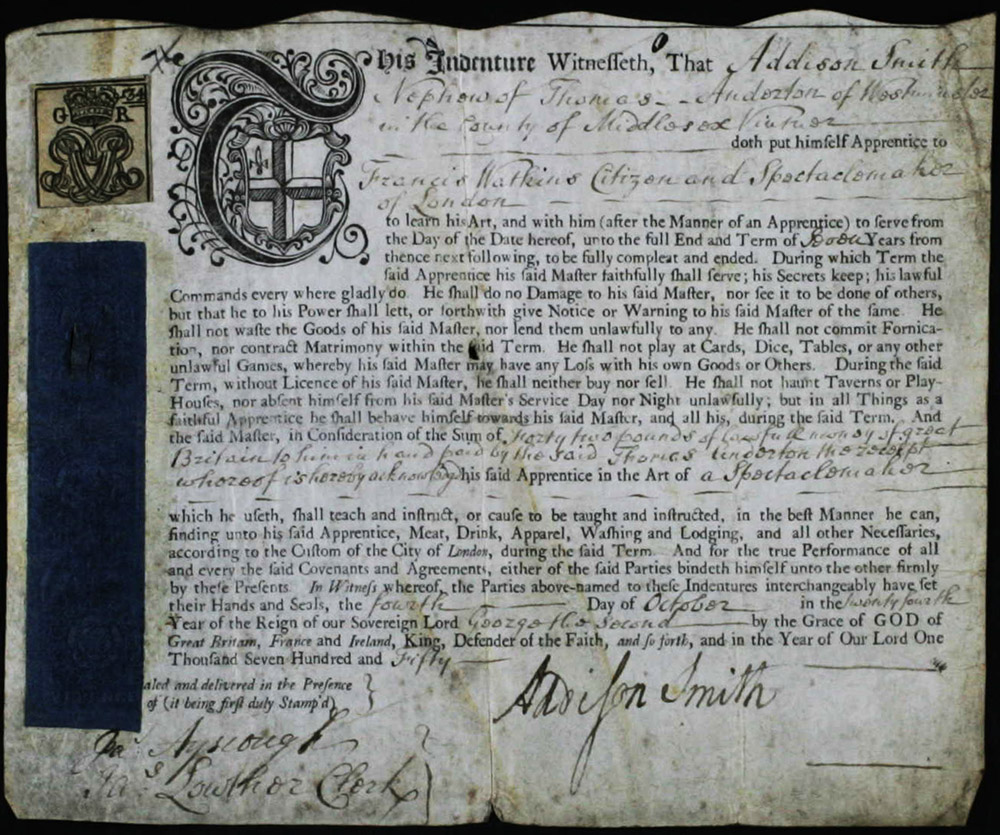 This Indenture Witnesseth, That Addison Smith
Nephew of Thomas Anderton of Westminster
in the County of Middlesex Vintner
doth put himself Apprentice to
Francis Watkins Citizen and Spectaclemaker
of London
to learn his Art, and with him (after the Manner of an Apprentice) to serve from
the Day of the Date hereof, unto the full End and Term of Seven Years from
thence next following, to be fully compleat and ended. During which Term the
said Apprentice his said Master faithfully shall serve; his Secrets keep; his lawful
Commands every where gladly do. He shall do no Damage to his said Master, nor see it to be done of others,
but that he to his Power shall lett, or forthwith give Notice or Warning to his said Master of the same. He
shall not waste the Goods of his said Master, nor lend them unlawfully to any. He shall not commit Fornica-
tion, nor contract Matrimony within the said Term. He shall not play at Cards, Dice, Tables, or any other
unlawful Games, whereby his said Master may have any Loss with his own Goods or Others. During the said
Term, without Licence of his said Master, he shall neither buy nor sell. He shall not haunt Taverns or Play-
Houses, nor absent himself from his said Master's Service Day nor Night unlawfully; but in all Things as a
faithful Apprentice he shall behave himself towards his said Master, and all his, during the said Term. And
the said Master, in Consideration of the Sum of forty two pounds of lawfull money of great
Britain to him in hand paid by the said Thomas Anderton the receipt
whereof is hereby acknowledged his said Apprentice in the Art of a Spectaclemaker
which he useth, shall teach and instruct, or cause to be taught and instructed, in the best Manner he can,
finding unto his said Apprentice, Meat, Drink, Apparel, Washing and Lodging, and all other Necessaries,
according to the Custom of the City of London, during the said Term. And for the true Performance of all
and every the said Covenants and Agreements, either of the said Parties bindeth himself unto the other firmly
by these Presents. In Witness whereof, the Parties above-named to these Indentures interchangeably have set
their Hands and Seals, the fourth Day of October in the twenty fourth
Year of the Reign of our Sovereign Lord George the Second by the Grace of GOD of
Great Britain, France and Ireland, King, Defender of the Faith, and so forth, and in the Year of Our Lord One
Thousand Seven Hundred and Fifty
aled and delivered in the Presence
of (it being first duly Stamp'd)
Addison Smith
Ja: Ayscough
Ja:s Lowther Clerk
G R